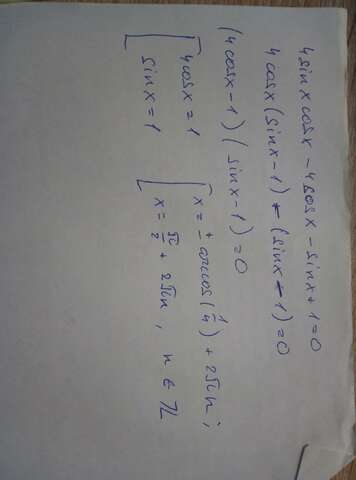 4 sinx cosx - 4 cosx - sinx + 1 = 0
4 cosx (sinx - 1) - (sinx - 1) = 0
(4 cosx - 1) ( sinx - 1 ) = 0
[ 4 cosx = 1 [ x = ± arccos(1/4) + 2πn ;
sinx = 1 x = π/2 + 2πn , n ∈ Z